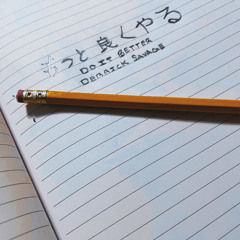 もっと良くやる
DO IT BETTER
DERRICK SAVAGE